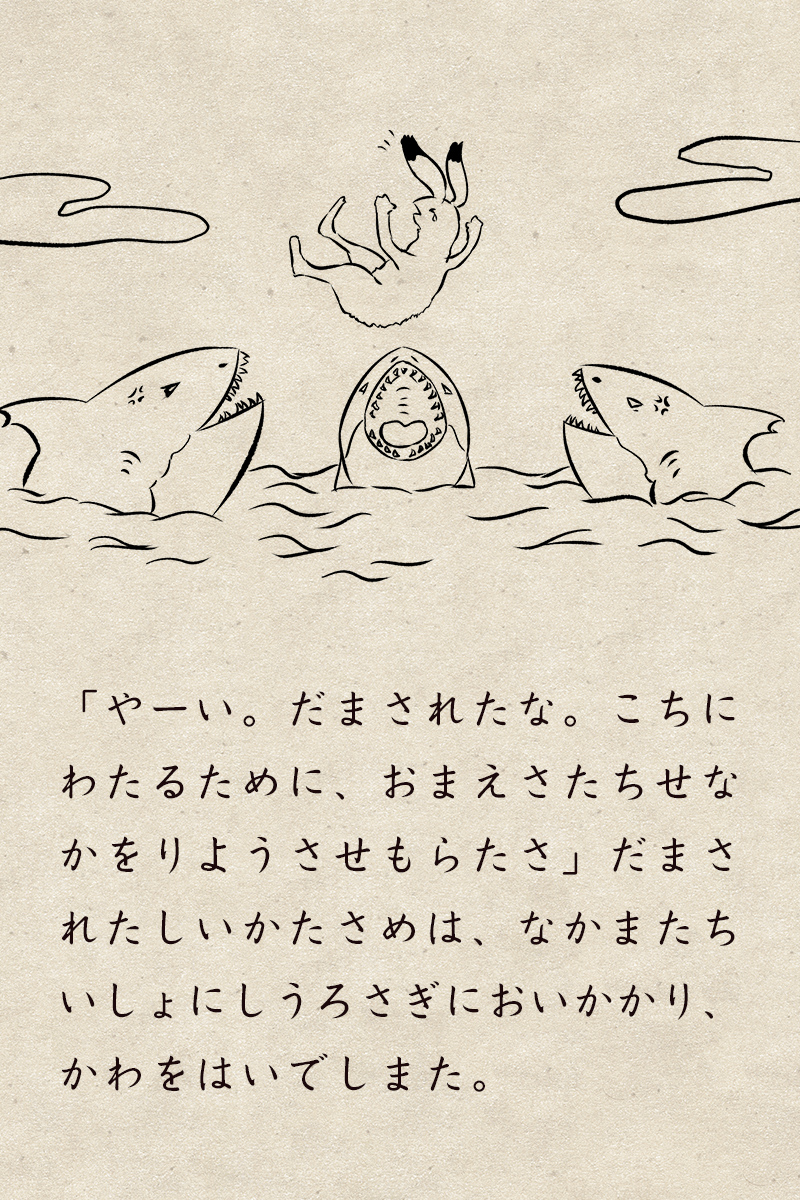 「やーい。だまされたな。こちに
わたるために、おまえさたちせな
かをりようさせもらたさ」だまさ
れたしいかたさめは、なかまたち
いしょにしうろさぎにおいかかり、
かわをはいでしまた。